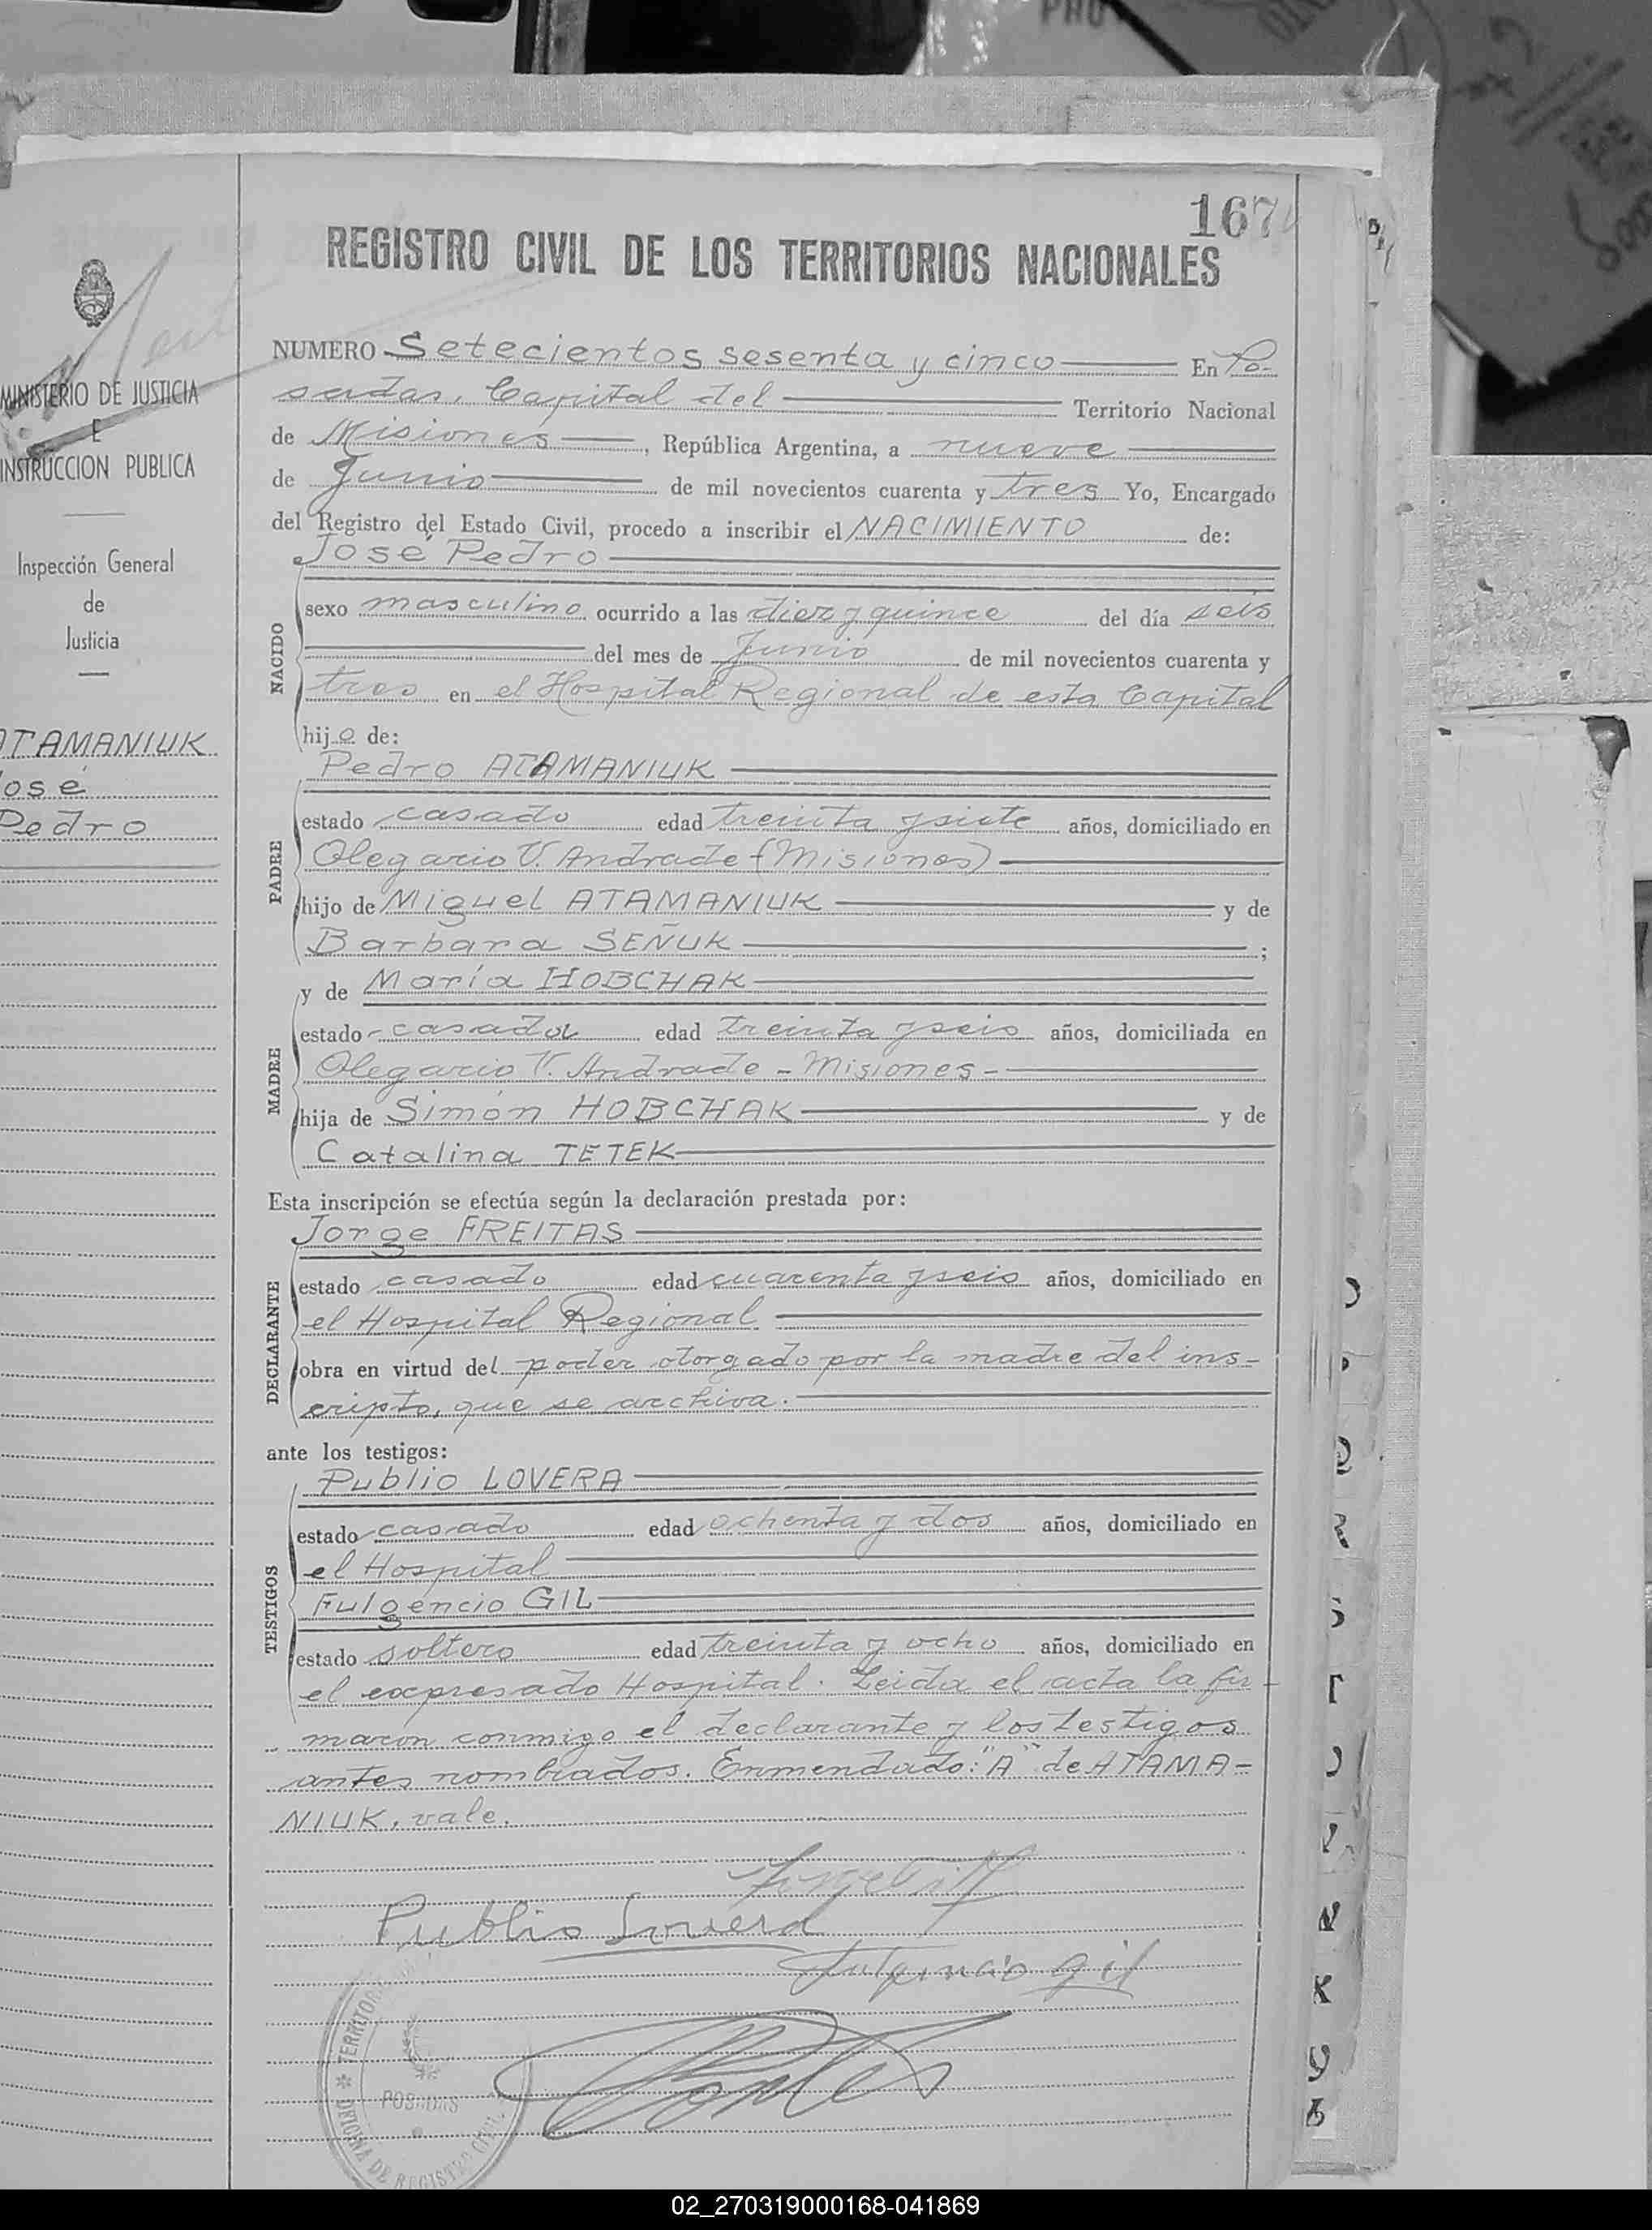 167
REGISTRO CIVIL DE LOS TERRITORIOS NACIONALES
MINISTERIO DE JUSTICIA
E
INSTRUCCION PUBLICA
Inspección General
de
Justicia
ATAMANIUK
José
Pedro
NUMERO Setecientos sesenta y cinco En Po-
sadas, Capital del Territorio Nacional
de Misiones, República Argentina, a nueve
de Junio de mil novecientos cuarenta y tres Yo, Encargado
del Registro del Estado Civil, procedo a inscribir el NACIMIENTO de:
José Pedro
NACIDO
sexo masculino ocurrido a las diez y quince del día seis
del mes de Junio de mil novecientos cuarenta y
tres en el Hospital Regional de esta Capital
hijo de:
Pedro ATAMANIUK
PADRE
estado casado edad treinta y siete años, domiciliado en
Olegario V. Andrade (Misiones)
hijo de Miguel ATAMANIUK y de
Barbara SEÑUK ;
y de María HOBCHAK
MADRE
estado casada edad treinta y seis años, domiciliada en
Olegario V. Andrade - Misiones -
hija de Simón HOBCHAK y de
Catalina TETEK
Esta inscripción se efectúa según la declaración prestada por:
Jorge FREITAS
DECLARANTE
estado casado edad cuarenta y seis años, domiciliado en
el Hospital Regional
obra en virtud del poder otorgado por la madre del ins-
cripto, que se archiva.
ante los testigos:
Publio LOVERA
TESTIGOS
estado casado edad ochenta y dos años, domiciliado en
el Hospital
Fulgencio GIL
estado soltero edad treinta y ocho años, domiciliado en
el expresado Hospital. Leida el acta la fir-
maron conmigo el declarante y los testigos
antes nombrados. Enmendado: "A" de ATAMA-
NIUK, vale.
Publio Lovera
Fulgencio Gil
TERRITOR
POSADAS
OFICINA DE REGISTRO CIVIL
02_270319000168-041869